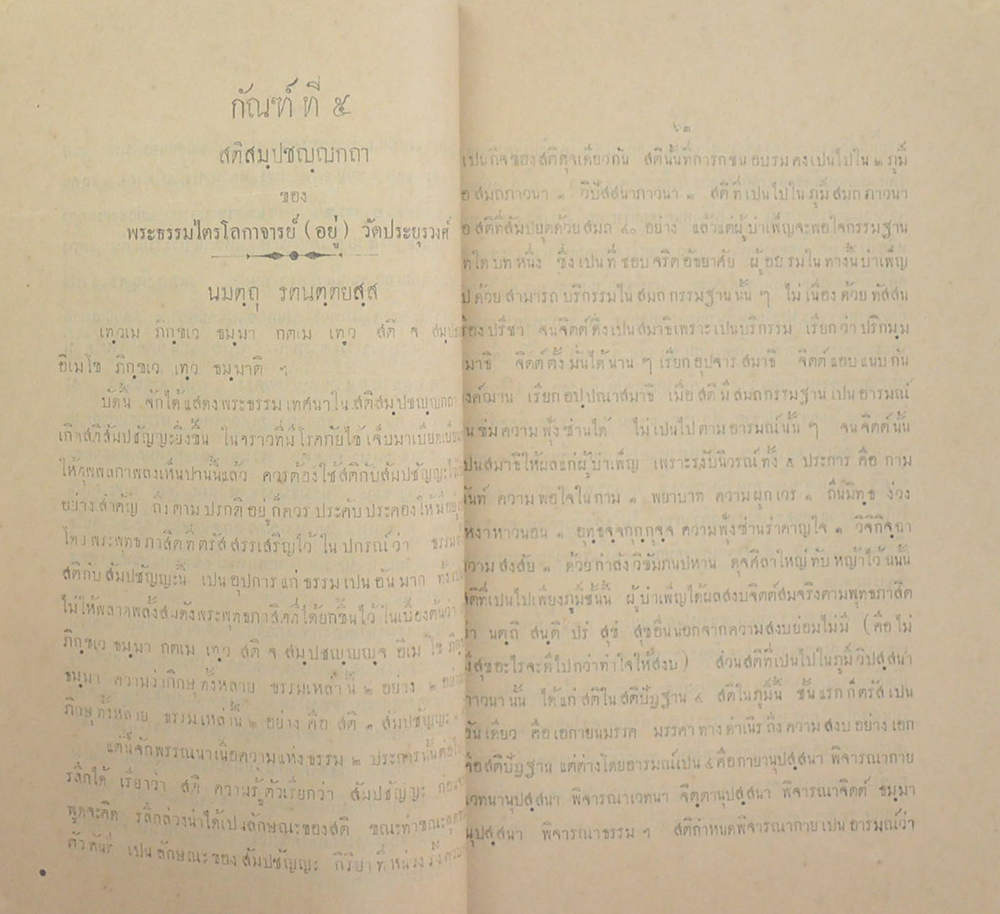 กัณฑ์ ที่ ๕
สติสมฺปชญฺญกถา
ของ
พระธรรมไตรโลกาจารย์ (อยู่) วัดประยุรวงศ์
นมตฺถุ รตนตฺตยสฺส
เทฺวเม ภิกฺขเว ธมฺมา กตเม เทฺว สติ จ
อิเมโข ภิกฺขเว เทฺว ธมฺมาติ ฯ
บัดนี้ จักได้แสดงพระธรรม เทศนาใน สติสมฺปชญฺญกถา
เกิดสติสัมปชัญญะยิ่งขึ้น ในคราวที่มีโรคภัยไข้เจ็บมาเบียดเบียน
ให้ทุพพลภาพลงเห็นปานนี้แล้ว ควรต้องใช้สติกับสัมปชัญญะ
อย่างสำคัญ ถึงตามปรกติอยู่ก็ควรประคับประคองให้มี
โดยพระพุทธภาสิตที่ตรัสสรรเสริญไว้ในปกรณ์ว่า
สติกับสัมปชัญญะนี้ เป็นอุปการแก่ธรรมเป็นอันมาก
ไม่ให้พลาดพลั้งสมดังพระพุทธภาสิตที่ได้ยกขึ้นไว้ในเบื้องต้นว่า
ภิกฺขเว ธมฺมา กตเม เทฺว สติ จ สมฺปชญฺญญฺจ อิเม โข
ธมฺมา ความว่าภิกษุทั้งหลาย ธรรมเหล่านี้ ๒ อย่าง ๒
ภิกษุทั้งหลาย ธรรมเหล่านี้ ๒ อย่าง คือ สติ ๑ สัมปชัญญะ
แต่นี้จักพรรณนาเนื้อความแห่งธรรม ๒ ประการนั้น
ระลึกได้ เรียกว่า สติ ความรู้ตัวเรียกว่า สัมปชัญญะ
พูดจะคิด ระลึกล่วงน่าได้เป็นลักษณะของสติ ขณะทำขณะพูด
ตัวทันที เป็นลักษณะของสัมปชัญญะ กิริยาที่หน่วงรั้ง
๖๓
เป็นกิจของสติดุจเดียวกัน สตินั้นที่การกชนอบรมคงเป็นไปใน ๒ ภูมิ์
สมถภาวนา ๑ วิปัสสนาภาวนา ๑ สติที่เป็นไปในภูมิ์สมถภาวนา
สติที่สัมปยุตด้วยสมถ ๔๐ อย่าง แล้วแต่ผู้บำเพ็ญจะพอใจกรรมฐาน
บทหนึ่ง ซึ่งเป็นที่ชอบจริตอัชยาศัย ผู้อบรมในทางนั้นบำเพ็ญ
ด้วยสามารถบริกรรมในสมถกรรมฐานนั้น ๆ ไม่เนื่องด้วยทัสสน
ปรีชา จนจิตต์ดิ่งเป็นสมาธิเพราะเป็นบริกรรม เรียกว่าปริกมฺม
จิตต์ตั้งมั่นได้นาน ๆ เรียกอุปจารสมาธิ จิตต์แอบแนบกัน
เรียกอปฺปณาสมาธิ เมื่อสติมีสมถกรรมฐานเป็นอารมณ์
ข่มความฟุ้งซ่านได้ ไม่เป็นไปตามอารมณ์นั้น ๆ จนจิตต์นั้น
สมาธิให้ผลแก่ผู้บำเพ็ญ เพราะระงับนิวรณ์ทั้ง ๕ ประการ คือ กาม
ความพอใจในกาม ๑ พยาบาท ความผูกเวร ๑ ถีนมิทธ ง่วง
เหงาหาวนอน ๑ อุทฺธจฺจกุกฺกุจฺจ ความฟุ้งซ่านรำคาญใจ ๑ วิจิกิจฺฉา
ความสงสัย ๑ ด้วยกำลังวิขัมภนปหาน ดุจศิลาใหญ่ทับหญ้าไว้ฉนั้น
สติที่เป็นไปเพียงภูมิ์ชั้นนี้ ผู้บำเพ็ญได้ผลสงบจิตต์สมจริงตามพุทธภาสิต
ว่า นตฺถิ สนฺติ ปรํ สุขํ สุขอื่นนอกจากความสงบย่อมไม่มี (คือไม่
มีสุขอะไรจะดีไปกว่าทำใจให้สงบ) ส่วนสติที่เป็นไปในภูมิ์วิปสฺสนา
ภาวนานั้น ได้แก่สติในสติปัฏฐาน ๔ สติในภูมินี้ ชั้นแรกก็ตรัสเป็น
อันเดียว คือเอกายนมรรค มรรคาทางดำเนิรถึงความสงบอย่างเอก
คือสติปัฏฐาน แต่ต่างโดยอารมณ์เป็น ๔ คือกายานุปสฺสนา พิจารณากาย
เวทนานุปสฺสนา พิจารณาเวทนา จิตฺตานุปสฺสนา พิจารณาจิตต์ ธมฺมา
นุปสฺสนา พิจารณาธรรม ฯ สติกำหนดพิจารณากายเป็นอารมณ์ว่า